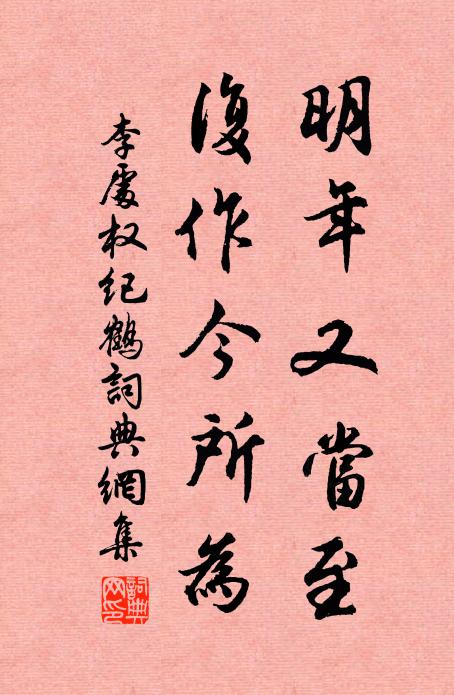 明年又當至
復作今所為
李處权纪鶴詞典網集
詞典网印